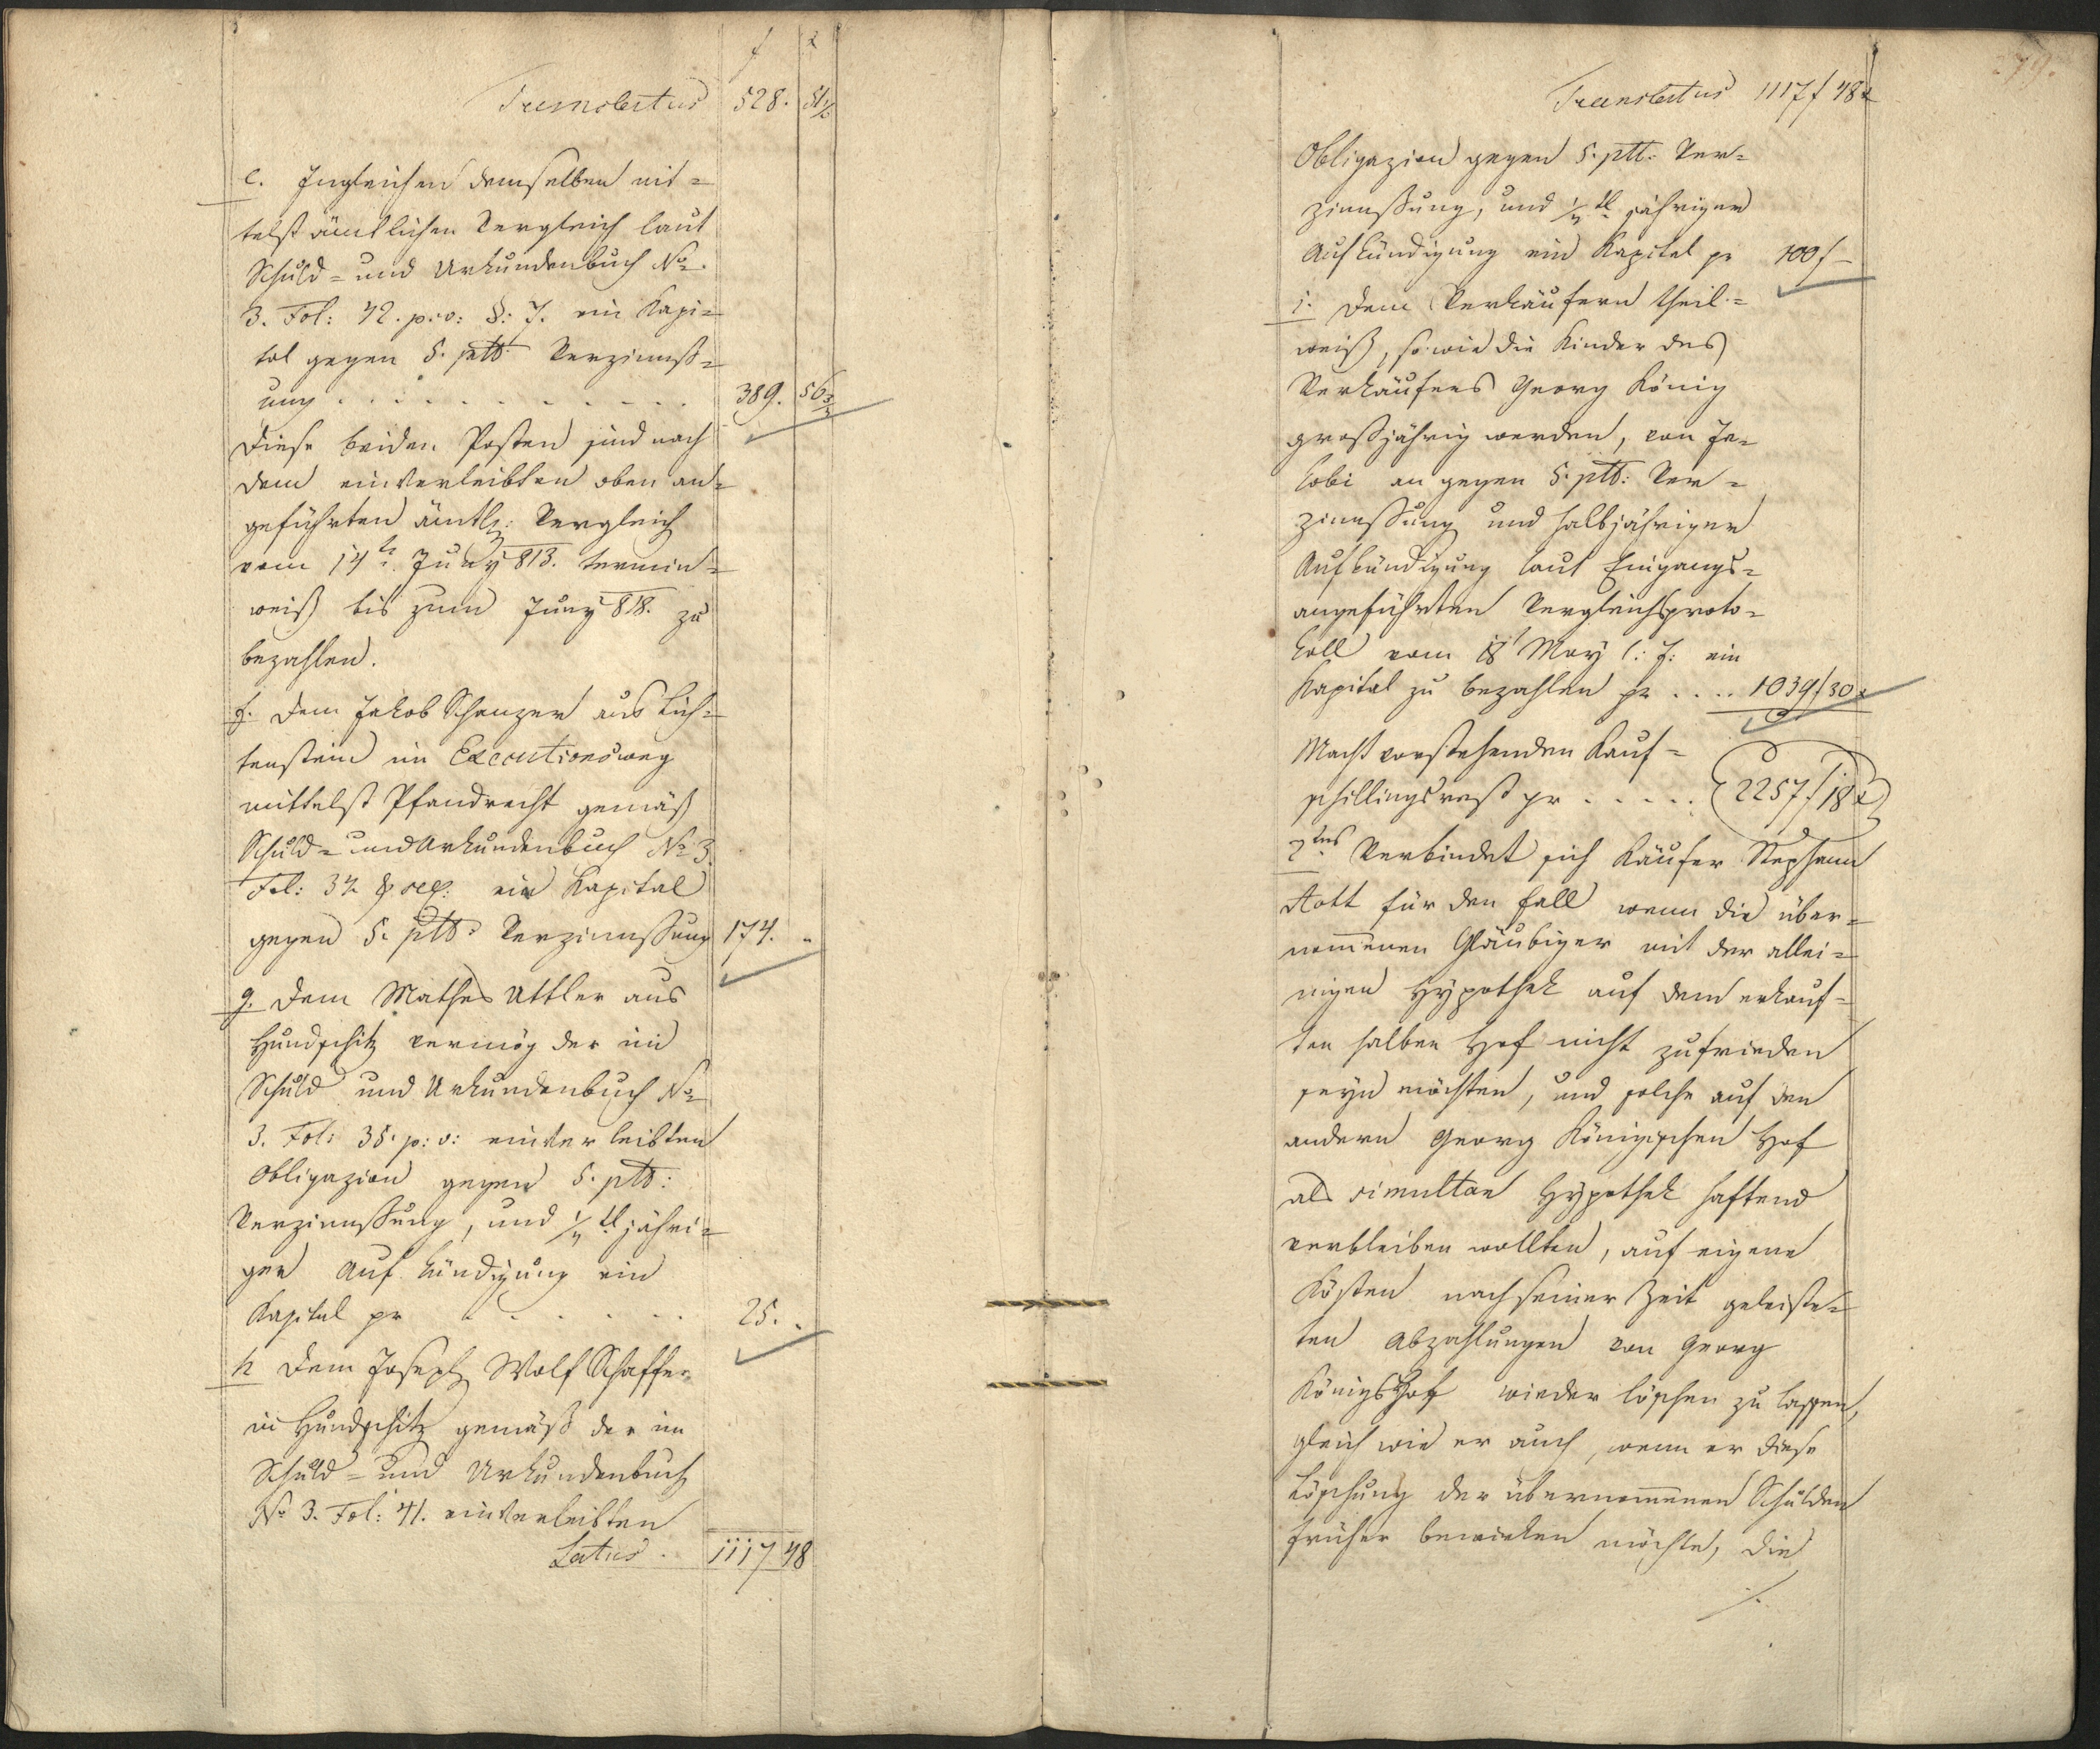 f x
Translatus 528. 51 1/2
e. Ingleichen demselben mit=
telst ämtlichen Vergleich laut
Schuld= und Urkundenbuch No.
3. Fol: 42. p: v: §: 7. ein Kapi=
tal gegen 5. ptto Verzinnß=
ung . . . . . . . . . . 389. 56
Diese beiden Posten sind nach
dem einverleibten oben an=
geführten ämtl: Vergleich
vom 14t. Juny 813. termin=
weiß bis zum Juny 818. zu
bezahlen.
f. Dem Jakob Schanzer aus Lich=
tenstein im Executionsweg
mittelst Pfandrecht gemäß
Schuld= und Urkundenbuch No 3.
Fol: 34 & seq: ein Kapital
gegen 5. ptto Verzinnßung 174. "
g. Dem Mathes Uttler aus
Hundschitz vermög der im
Schuld und Urkundenbuch No
3. Fol: 38. p: v: einverleibten
Obligazion gegen 5. ptto:
Verzinnßung, und 1/4 tl jähri=
ger Aufkündigung ein
Kapital pr . . . . . . 25. "
h Dem Joseph Wolf Schaffer
in Hundschitz gemäß der im
Schuld= und Urkundenbuch
No 3. Fol: 41. einverleibten
Latus . 1117 48
79.
Translatus 1117 f 48 x
Obligazion gegen 5. ptt: Ver=
zinnßung, und 1/4 tl jähriger
Aufkündigung ein Kapital pr 100 f —
i. Dem Verkäufern theil=
weiß, so wie die Kinder des
Verkäufers Georg König
großjährig werden, von Ja=
kobi an gegen 5. ptto: Ver=
zinnßung und halbjähriger
Aufkündigung laut Eingangs=
angeführten Vergleichsproto=
koll vom 18t May l: J: ein
Kapital zu bezahlen pr . . . . 1039 f 30 x
Macht vorstehenden Kauf=
schillingsrest pr . . . . . 2257 f 18 x
2tens Verbindet sich Käufer Stephann
Kott für den Fall wenn die über=
nommenen Gläubiger mit der allei=
nigen Hypothek auf dem erkauf=
ten halben Hof nicht zufrieden
seyn möchten, und solche auf den
andern Georg Königischen Hof
als simultan Hypothek haftend
verbleiben wollten, auf eigene
Kösten nach seiner Zeit geleiste=
ten Abzahlungen von Georg
Königs Hof wieder löschen zu lassen,
gleich wie er auch, wenn er diese
Löschung der übernommenen Schulden
früher bewirken möchte, die
./.